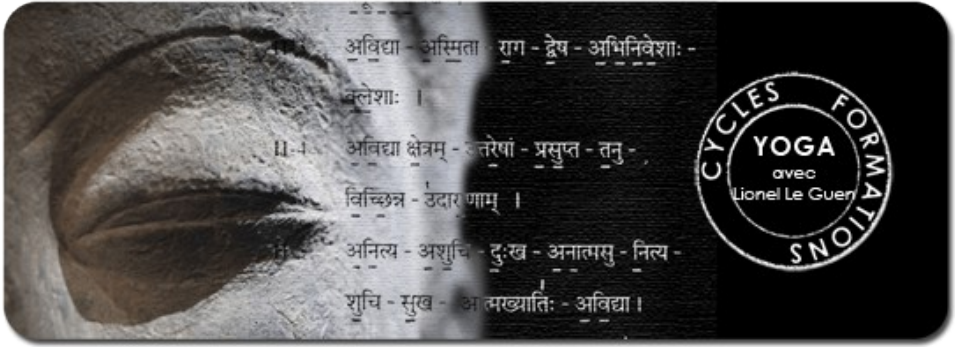 अविद्या - अस्मिता राग - द्वेष - अभिनिवेशाः -
क्लेशाः ।
अविद्या क्षेत्रम् - प्रसुप्त - तनु -
विच्छिन्न -
अनित्य - अशुचि - दुःख - अनात्मसु - नित्य -
शुचि - सुख - - अविद्या ।
CYCLES FORMATIONS
YOGA
avec
Lionel Le Guen